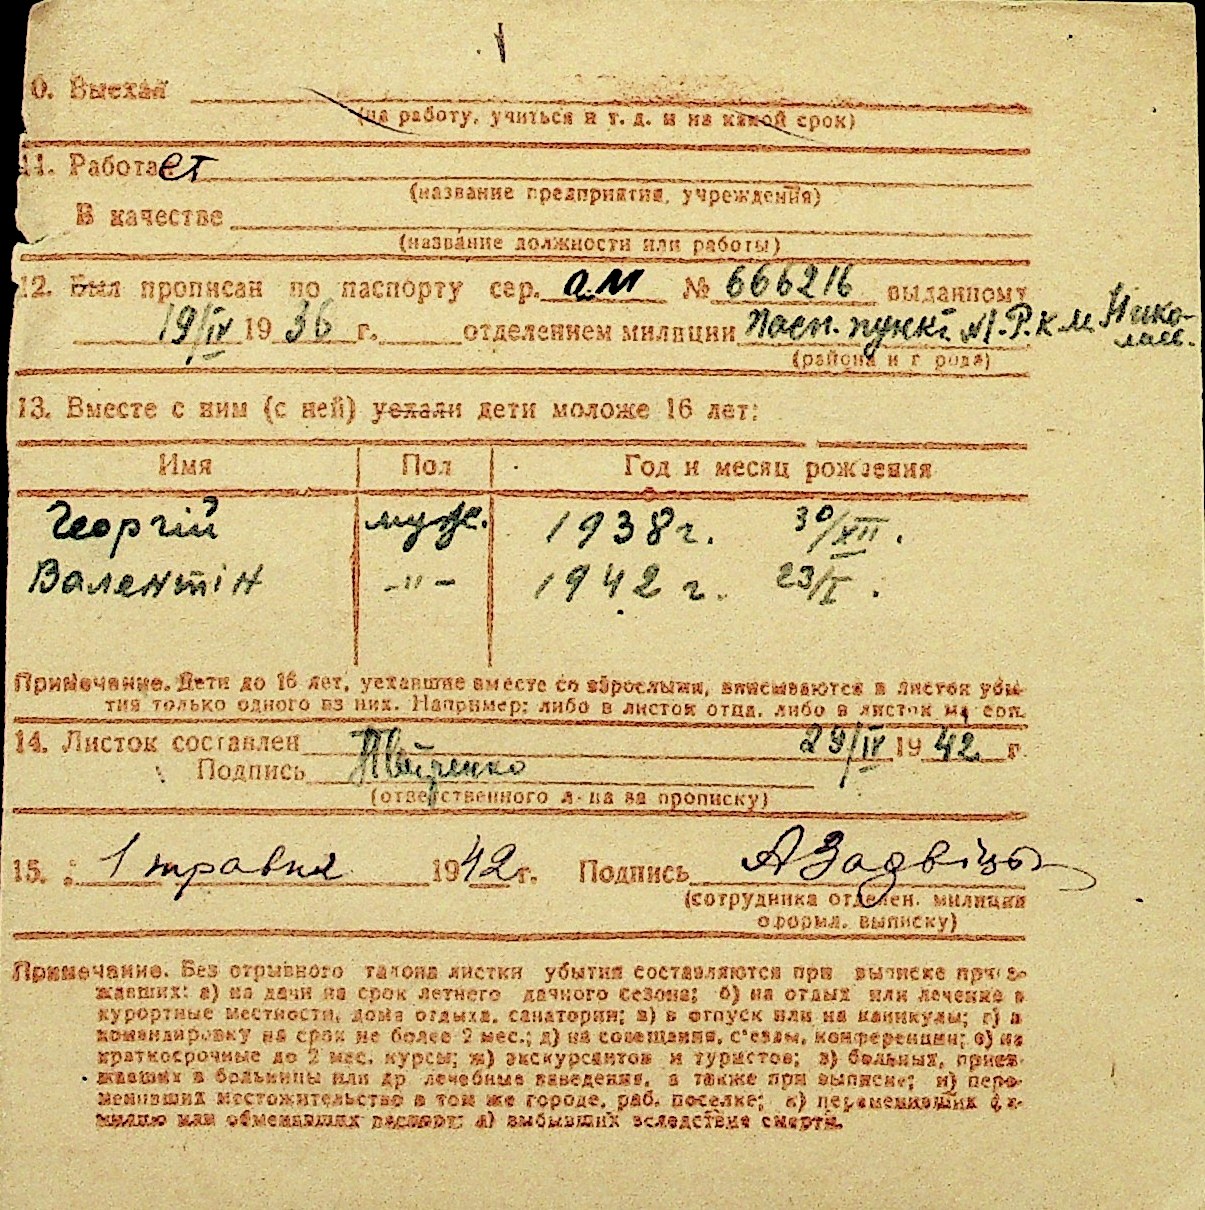 0. Выехал
(на работу, учиться и т. д. и на какой срок)
11. Работает
(название предприятия, учреждения)
В качестве
(название должности или работы)
12. Был прописан по паспорту сер. а.м № 666216 выданному
19/IV 1936 г. отделением милиции Пасп. пункт Н.Р.К.М. Нико-
лаев.
(района и г рода)
13. Вместе с ним (с ней) уехали дети моложе 16 лет:
Имя Пол Год и месяц рождения
Георгій муж. 1938 г. 30/XII.
Валентін -"- 1942 г. 23/I.
Примечание. Дети до 16 лет, уехавшие вместе со взрослыми, вписываются в листок убы-
тия только одного из них. Например: либо в листок отца, либо в листок матери.
14. Листок составлен 29/IV 1942 г.
Подпись
(ответственного л-ца за прописку)
15. 1 травня 1942 г. Подпись
(сотрудника отделен. милиции
оформл. выписку)
Примечание. Без отрывного талона листки убытия составляются при выписке приез-
жавших: а) на дачи на срок летнего дачного сезона; б) на отдых или лечение в
курортные местности, дома отдыха, санатории; в) в отпуск или на каникулы; г) в
командировку на срок не более 2 мес.; д) на совещания, с'езды, конференции; е) на
краткосрочные до 2 мес. курсы; ж) экскурсантов и туристов; з) больных, приез-
жавших в больницы или др лечебные заведения, а также при выписке; и) пере-
менивших местожительство в том же городе, раб. поселке; к) переменивших фа-
милию или обменявших паспорт; л) выбывших вследствие смерти.